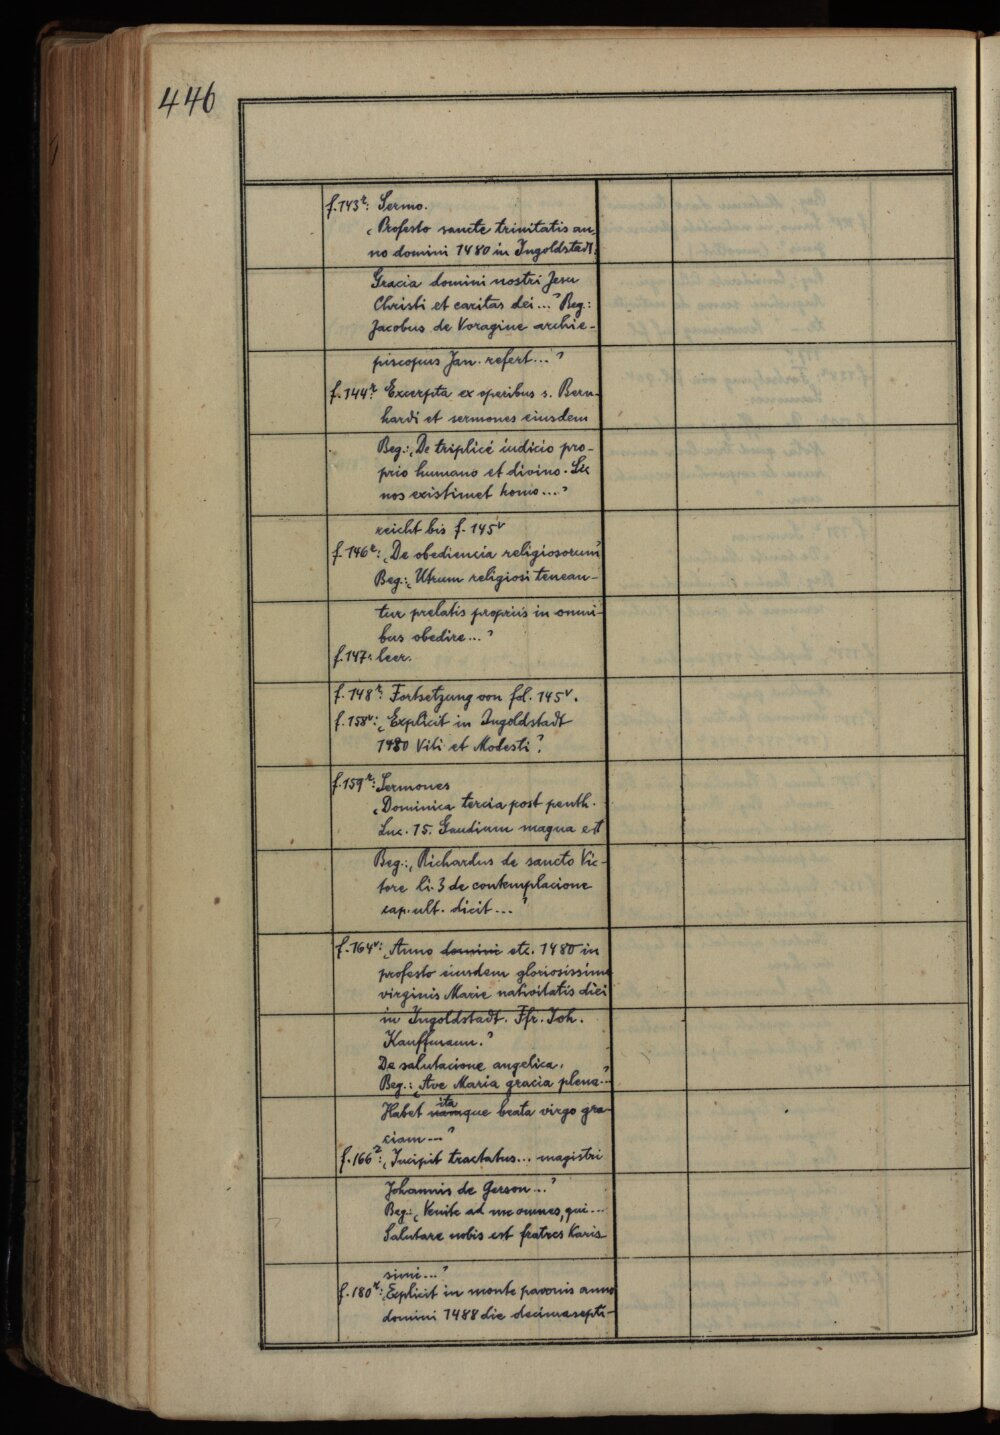 446
f. 143ʳ: Sermo.
„Profesto sancte trinitatis an-
no domini 1480 in Ingoldstadt.
Gracia domini nostri Jesu
Christi et caritas dei..." Beg.:
Jacobus de Voragine archie-
piscopus Jan. refert..."
f. 144ʳ: Excerpta ex operibus s. Bern-
hardi et sermones eiusdem
Beg.: „De triplici iudicio pro-
prio humano et divino. Sic
nos existimet homo..."
reicht bis f. 145ᵛ
f. 146ʳ: „De obediencia religiosorum"
Beg.: „Utrum religiosi tenean-
tur prelatis propriis in omni-
bus obedire..."
f. 147: leer.
f. 148ʳ: Fortsetzung von fol. 145ᵛ.
f. 158ᵛ: „Explicit in Ingoldstadt
1480 Viti et Modesti".
f. 159ʳ: Sermones
„Dominica tercia post penth.
Luc. 15. Gaudium magna est
Beg.: „Richardus de sancto Vic-
tore li. 3 de contemplacione
cap. ult. dicit..."
f. 164ᵛ: „Anno domini etc. 1480 in
profesto eiusdem gloriosissime
virginis Marie nativitatis diei
in Ingoldstadt. Ffr. Joh.
Kauffmann."
De salutacione angelica.
Beg.: „Ave Maria gracia plena..."
ita
Habet namque beata virgo gra-
ciam..."
f. 166ʳ: „Incipit tractatus... magistri
Johannis de Gerson..."
Beg.: „Venite ad me omnes, qui...
Salutare nobis est fratres karis-
simi..."
f. 180ʳ: „Explicit in monte pavonis anno
domini 1488 die decimasepti-